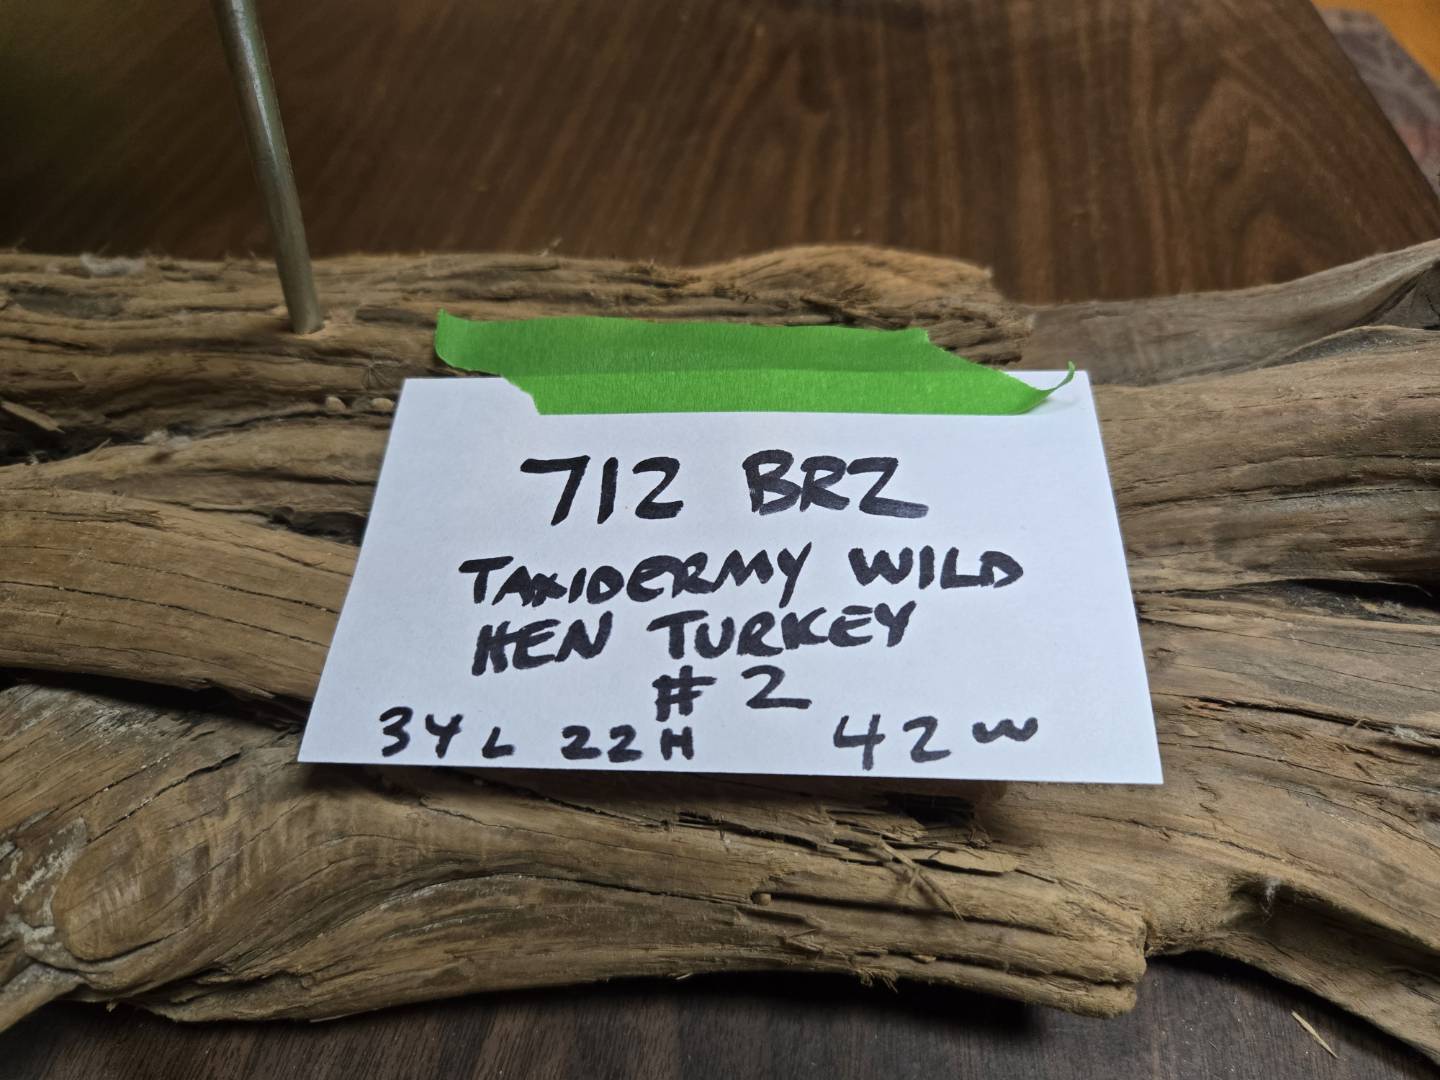 712 BRZ
TAXIDERMY WILD
HEN TURKEY
# 2
34 L 22 H 42 W